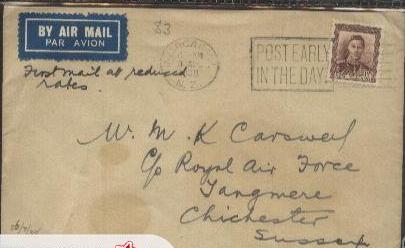 83
BY AIR MAIL
PAR AVION
POST EARLY
IN THE DAY.
N.Z.
First mail at reduced
rates.
W. M. K Carswell
C/o Royal Air Force
Tangmere
Chichester
Sussex